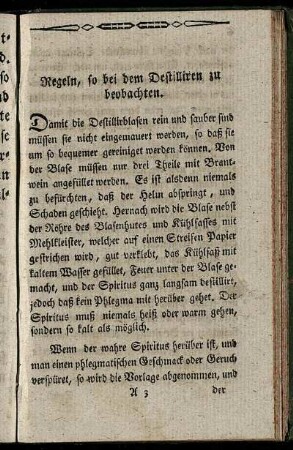 Regeln, so bei dem Destilliren zu
beobachten.
Damit die Destillirblasen rein und sauber sind
müssen sie nicht eingemauert werden, so daß sie
um so bequemer gereiniget werden können. Von
der Blase müssen nur drei Theile mit Brant-
wein angefüllet werden. Es ist alsdenn niemals
zu befürchten, daß der Helm abspringt, und
Schaden geschieht. Hernach wird die Blase nebst
der Röhre des Blasenhutes und Kühlfasses mit
Mehlkleister, welcher auf einen Streifen Papier
gestrichen wird, gut verklebt, das Kühlfaß mit
kaltem Wasser gefüllet, Feuer unter der Blase ge-
macht, und der Spiritus ganz langsam destillirt,
jedoch daß kein Phlegma mit herüber gehet. Der
Spiritus muß niemals heiß oder warm gehen,
sondern so kalt als möglich.
Wenn der wahre Spiritus herüber ist, und
man einen phlegmatischen Geschmack oder Geruch
verspüret, so wird die Vorlage abgenommen, und
A 3 der